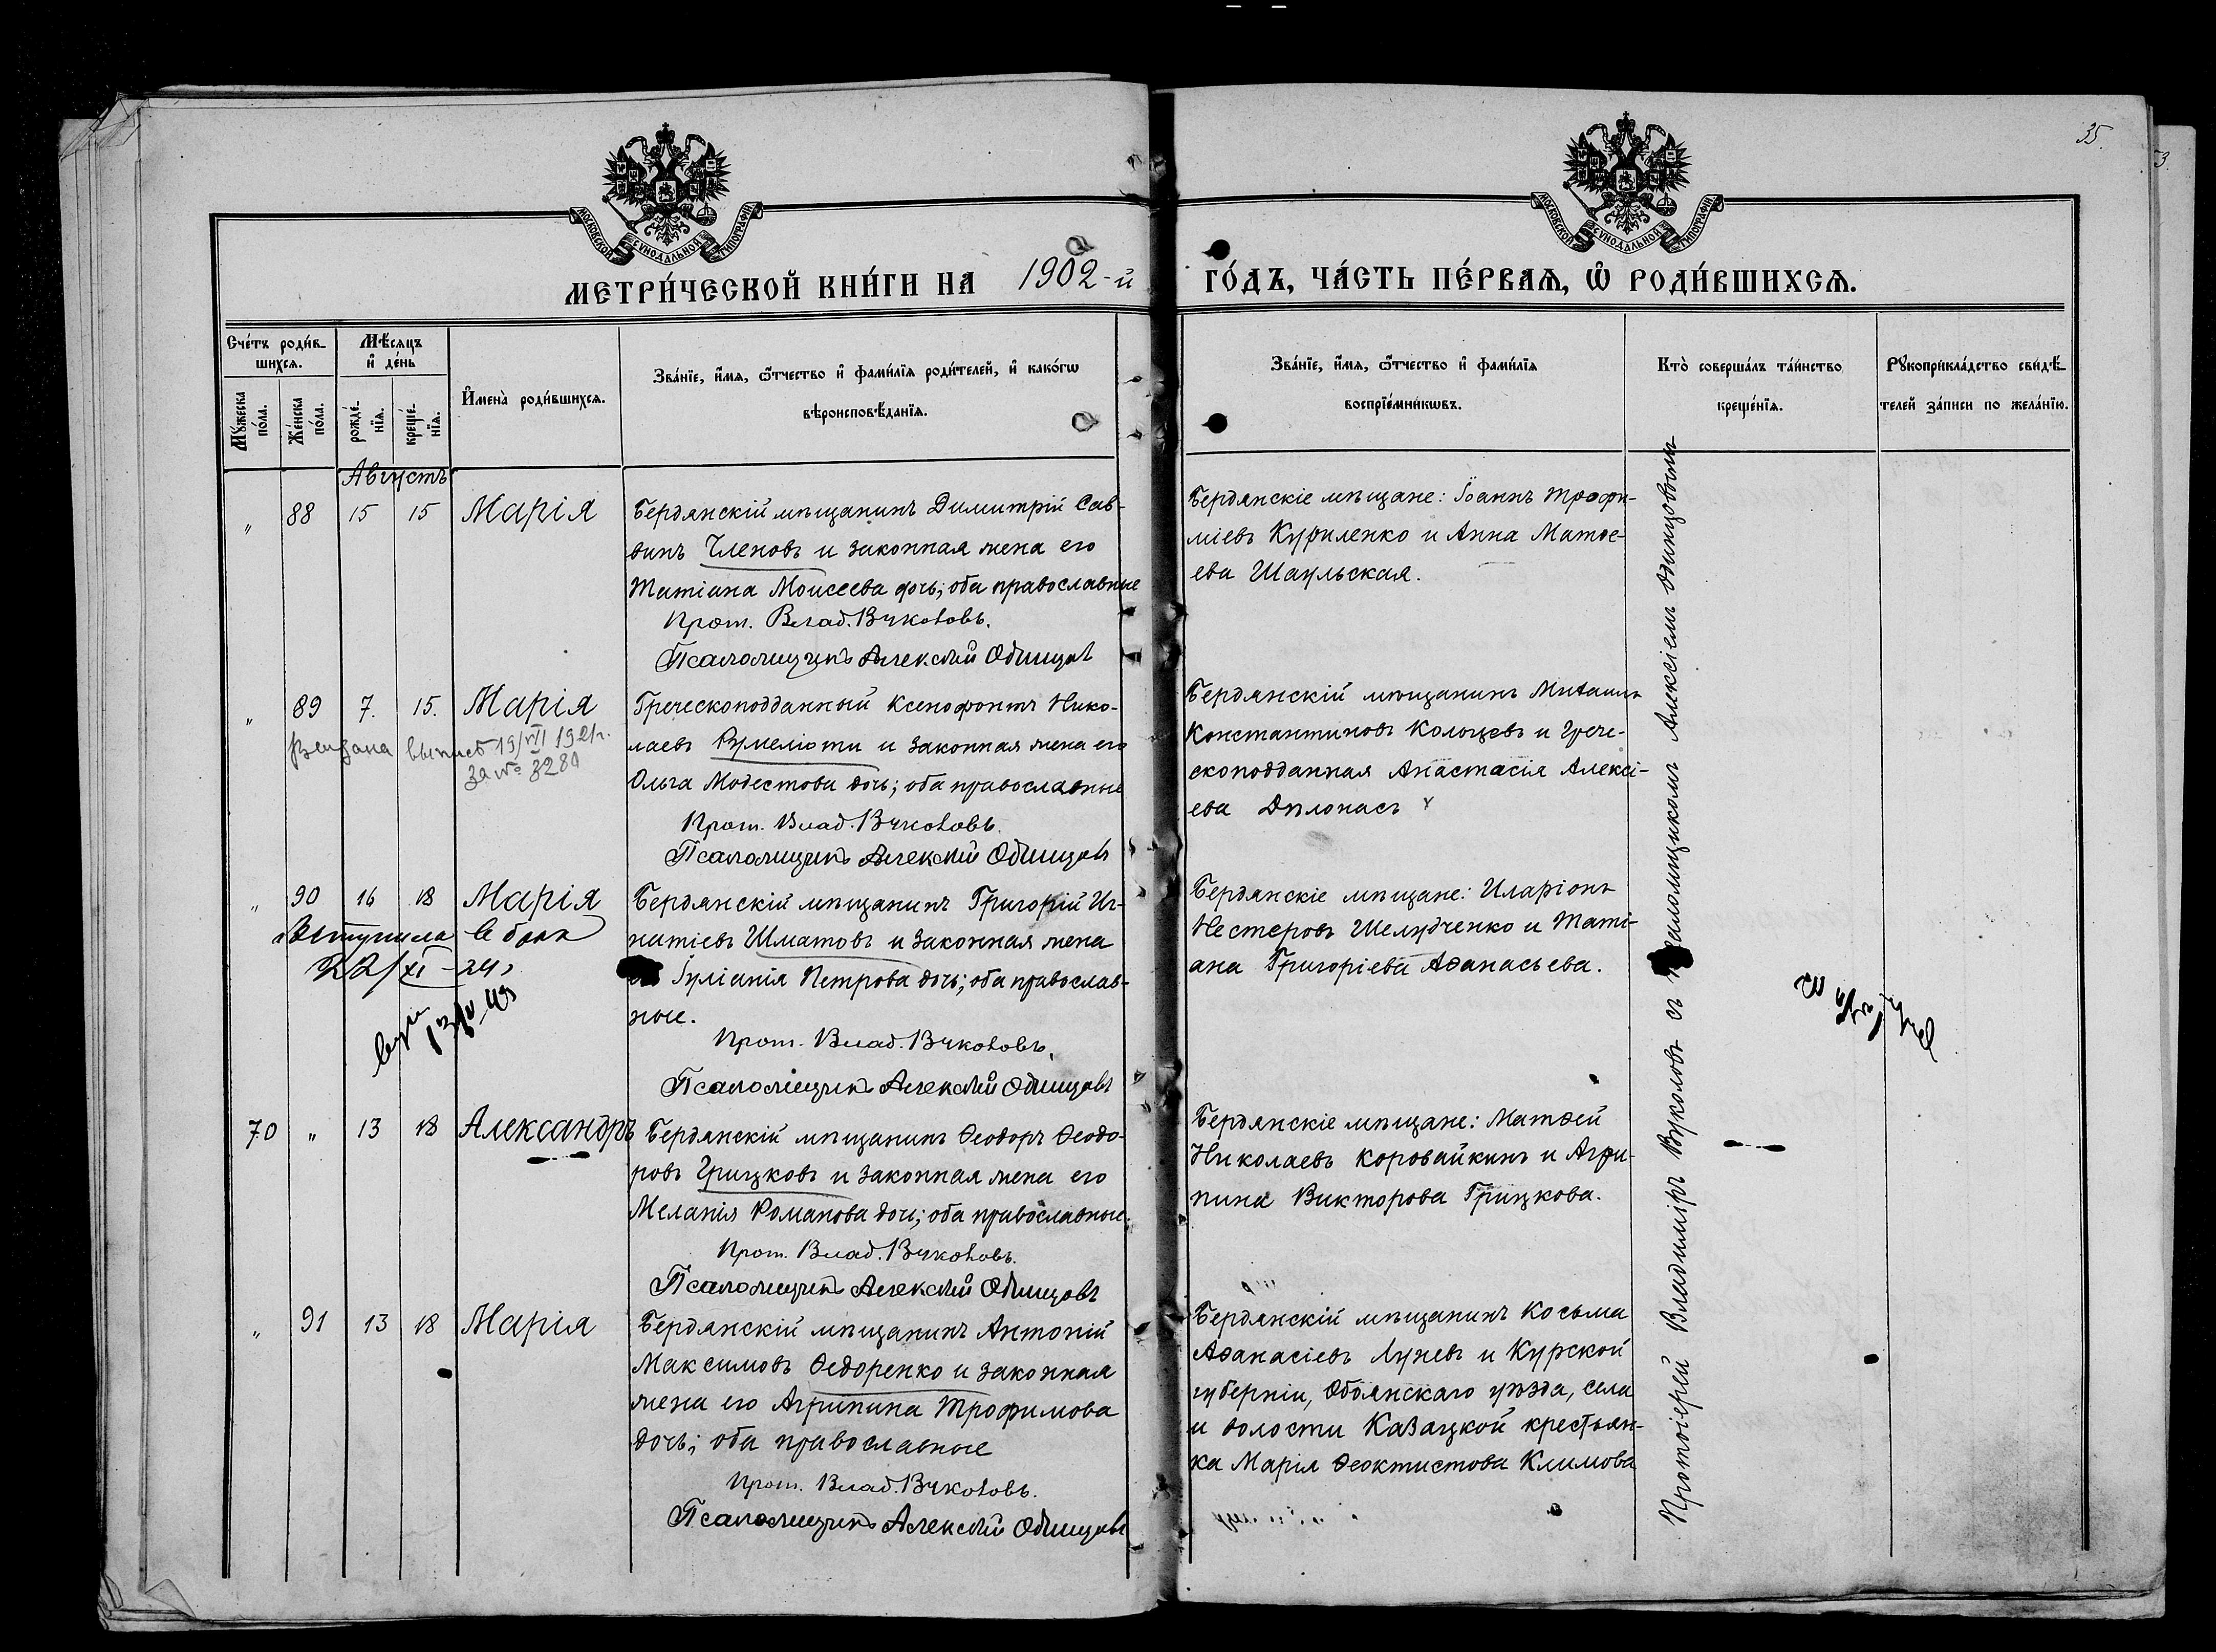 35.
МОСКОВСКОЙ СѴНОДАЛЬНОЙ ТИПОГРАФІИ
МОСКОВСКОЙ СѴНОДАЛЬНОЙ ТИПОГРАФІИ
МЕТРИ́ЧЕСКОЙ КНИ́ГИ НА 1902-й ГО́ДЪ, ЧА́СТЬ ПЕ́РВАЯ, Ѡ РОДИ́ВШИХСЯ.
Сче́тъ роди́в-
шихся.
Мꙋ́жеска по́ла.
Же́нска по́ла.
Мѣ́сяцъ и҆ де́нь
рожде́-
нїя.
креще́-
нїя.
И҆мена̀ роди́вшихся.
Зва́нїе, и҆́мя, ѻ҆́тчество и҆ фами́лїя роди́телей, и҆ како́гѡ
вѣроисповѣ́данїя.
Зва́нїе, и҆́мя, ѻ҆́тчество и҆ фами́лїя
воспрїе́мникѡвъ.
Кто̀ соверша́лъ та́инство
креще́нїя.
Рꙋкоприкла́дство свидѣ́-
телей за́писи по жела́нїю.
Августъ
" 88 15 15 Марія
Бердянскій мѣщанинъ Димитрій Сав-
винъ Членовъ и законная жена его
Татіана Моисеева дочь; оба православные
Прот. Влад. Вуколовъ.
Псаломщикъ Алексѣй Одинцовъ
Бердянскіе мѣщане: Іоаннъ Трофи-
міевъ Куриленко и Анна Матѳе-
ева Шаульская.
" 89 7. 15. Марія
выпись 19/VII 1921г.
за № 3280
Греческоподданный Ксенофонтъ Нико-
лаевъ Румеліоти и законная жена его
Ольга Модестова дочь; оба православные
Прот. Влад. Вуколовъ.
Псаломщикъ Алексѣй Одинцовъ
Бердянскій мѣщанинъ Михаилъ
Константиновъ Кольцевъ и грече-
скоподданная Анастасія Алексі-
ева Дилонасъ
" 90 16 18 Марія
Вступила в брак
22/XI-24
Бердянскій мѣщанинъ Григорій Иг-
натіевъ Шматовъ и законная жена
Іуліанія Петрова дочь; оба православ-
ные.
Прот. Влад. Вуколовъ.
Псаломщикъ Алексѣй Одинцовъ
Бердянскіе мѣщане: Иларіонъ
Нестеровъ Шелудченко и Таті-
ана Григоріева Аѳанасьева.
70 " 13 18 Александръ
Бердянскій мѣщанинъ Ѳеодоръ Ѳеодо-
ровъ Грицковъ и законная жена его
Меланія Романова дочь; оба православные.
Прот. Влад. Вуколовъ.
Псаломщикъ Алексѣй Одинцовъ
Бердянскіе мѣщане: Матѳей
Николаевъ Коровайкинъ и Агри-
пина Викторова Грицкова.
" 91 13 18 Марія
Бердянскій мѣщанинъ Антоній
Максимовъ Ѳедоренко и законная
жена его Агрипина Трофимова
дочь; оба православные
Прот. Влад. Вуколовъ.
Псаломщикъ Алексѣй Одинцовъ
Бердянскій мѣщанинъ Косьма
Аѳанасіевъ Луневъ и Курской
губерніи, Обоянскаго уѣзда, села
и волости Казацкой крестьян-
ка Марія Ѳеоктистова Климова
Протоіерей Владиміръ Вуколовъ съ псаломщикомъ Алексіемъ Одинцовымъ